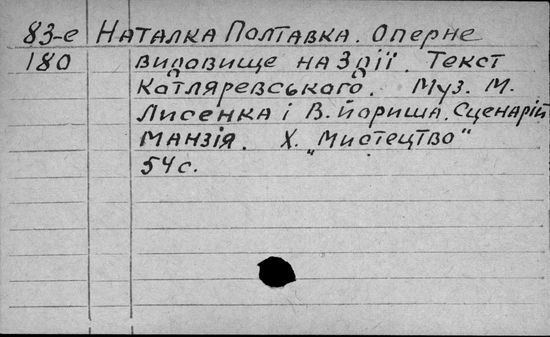 83-е Наталка Полтавка. Оперне
180 видовище на 3 дії. Текст
Котляревського. Муз. М.
Лисенка і В. Йориша. Сценарій
Манзія. Х. "Мистецтво"
54 с.